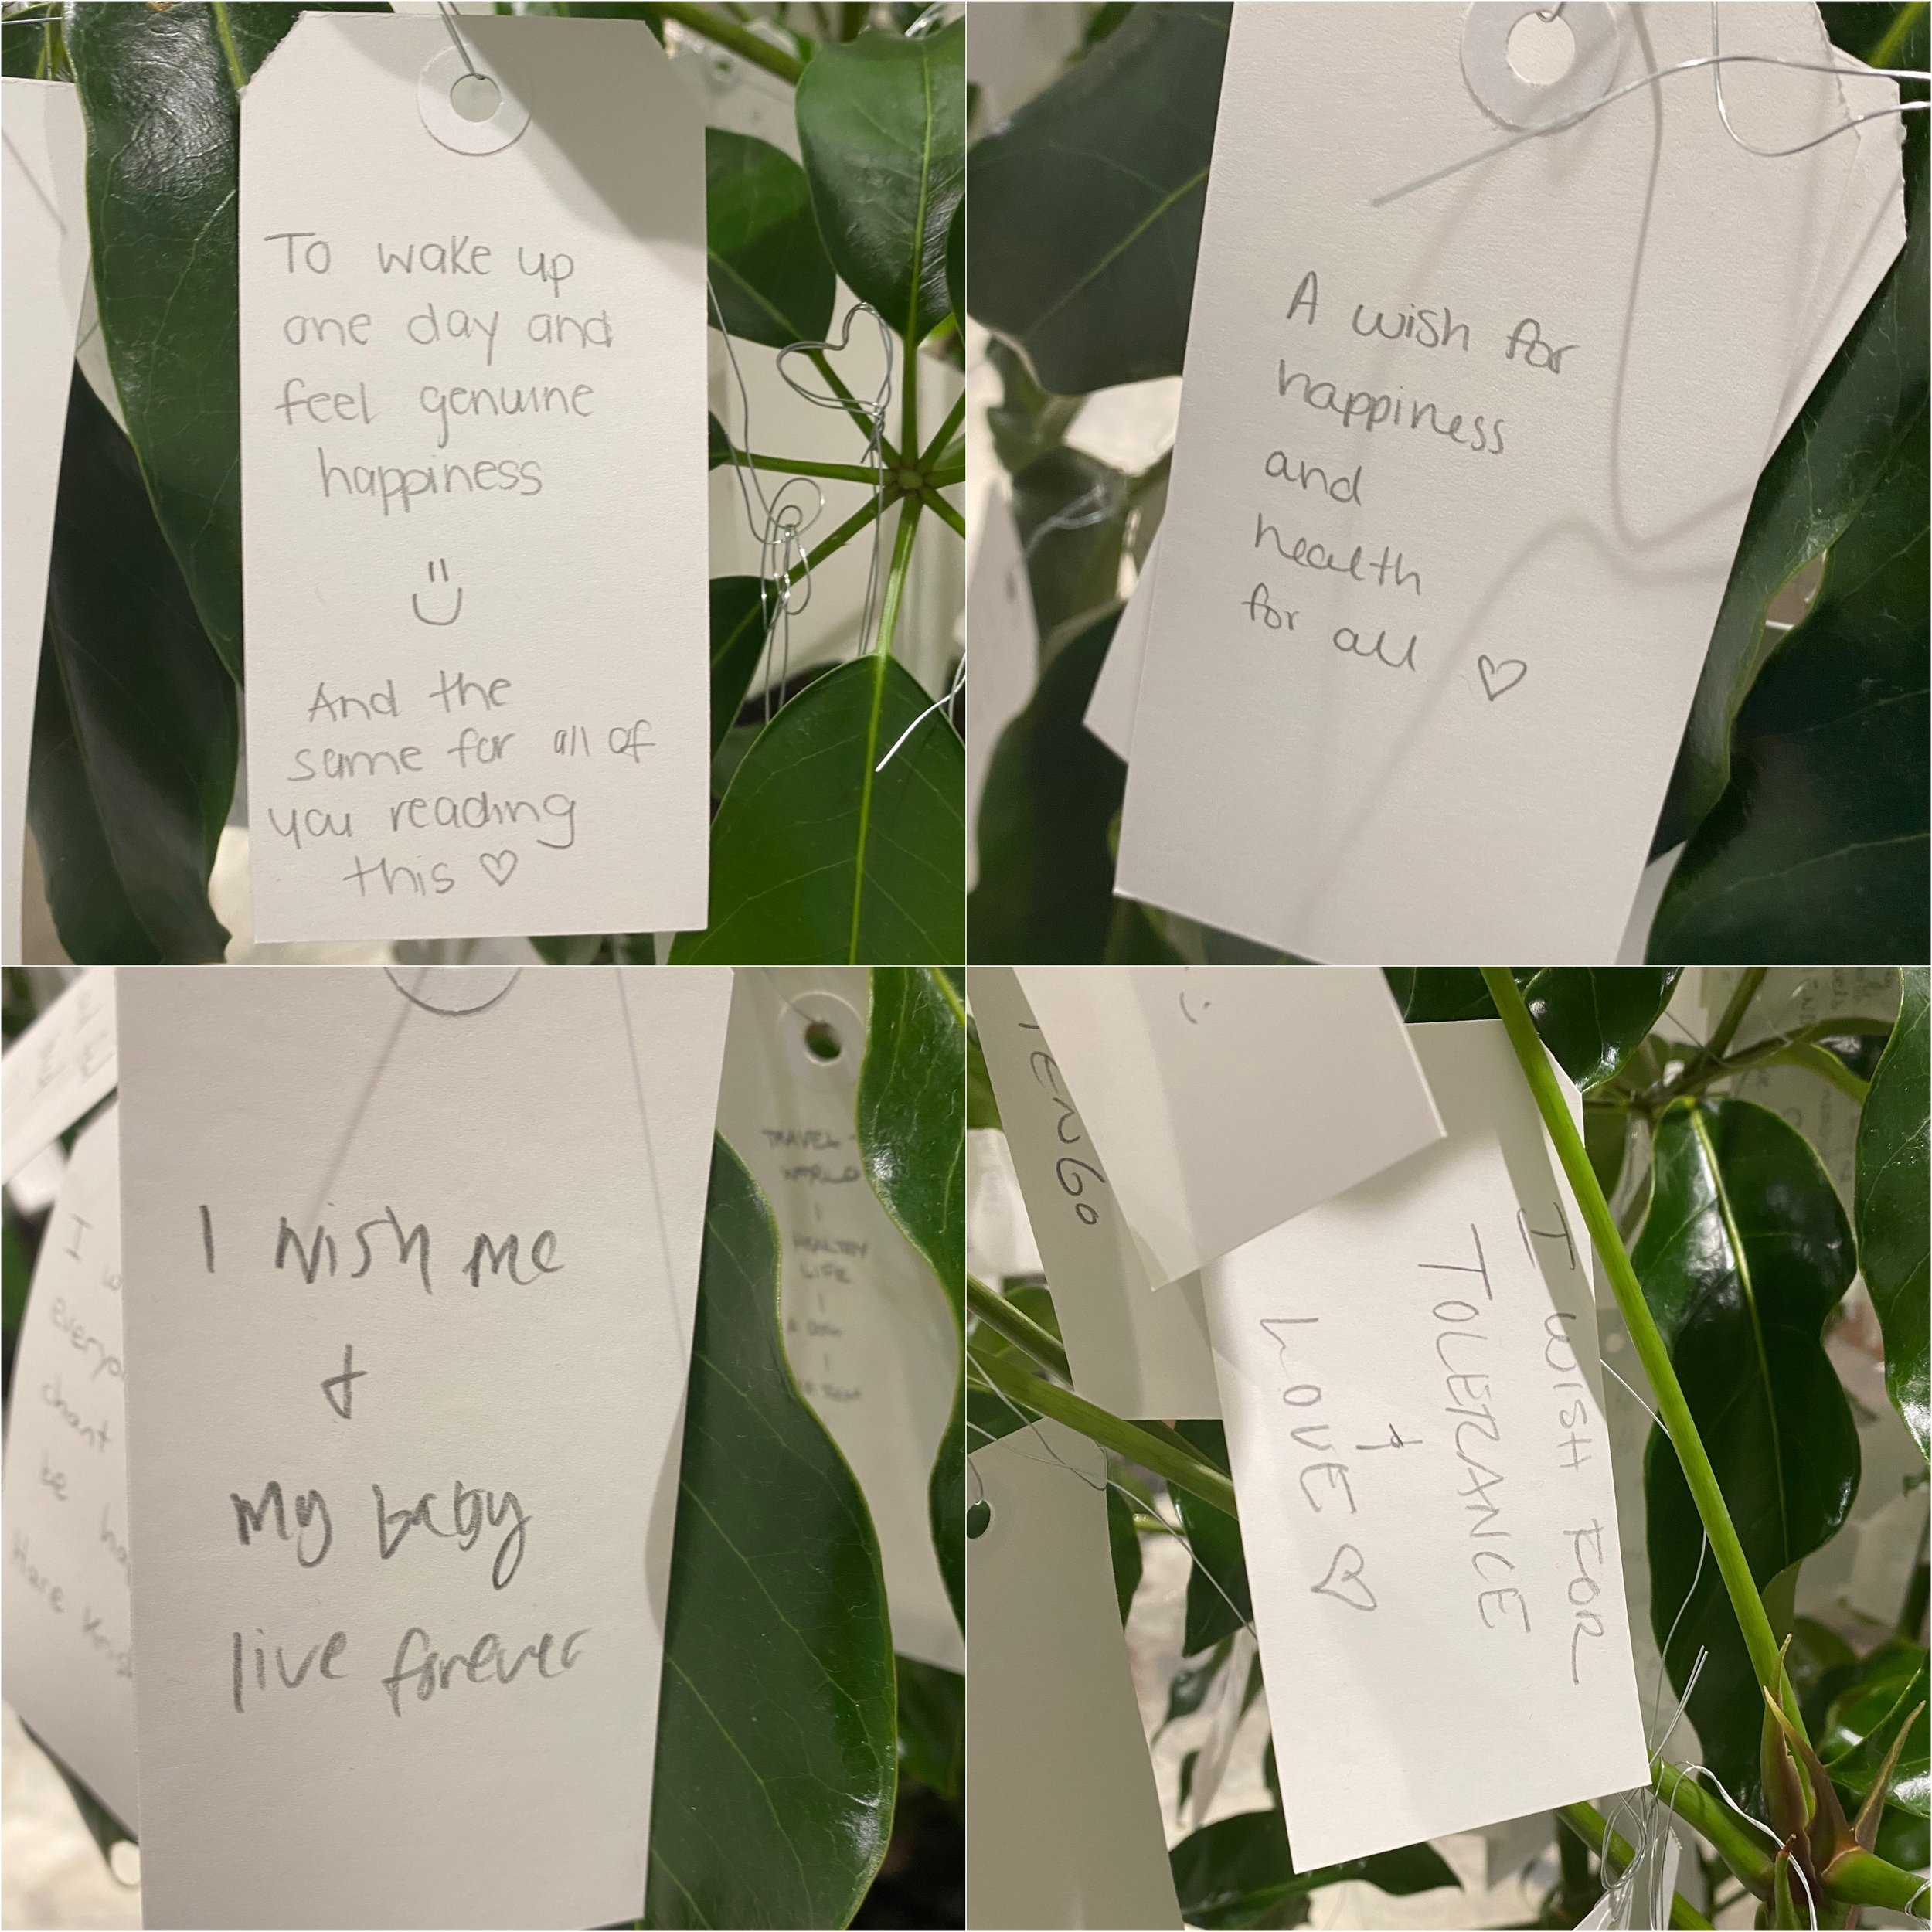 To wake up
one day and
feel genuine
happiness
And the
same for all of
you reading
this ♡
A wish for
happiness
and
health
for all ♡
I wish me
+
my baby
live forever
I
everyo
chant
be ha
Hare Kris
TRAVEL -
WORLD
HEALTHY
LIFE
TENGO
I WISH FOR
TOLERANCE
+
LOVE ♡